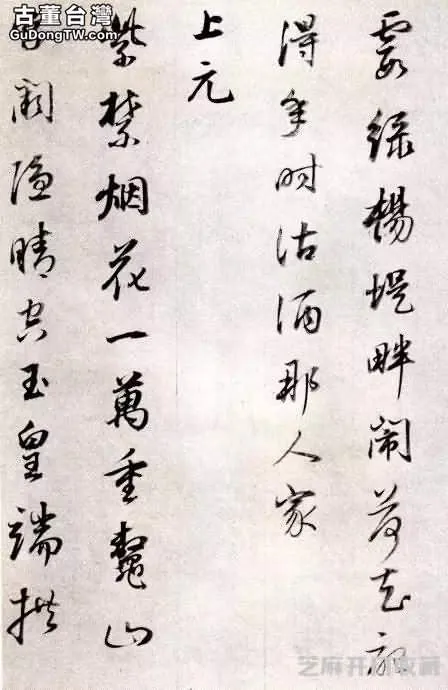 古董台灣
GuDongTW.com
霞绿楊堤畔闹荷花記
得年时沽酒那人家
上元
紫禁烟花一萬重鰲山
宫阙隐晴空玉皇端拱
芝麻开门收藏